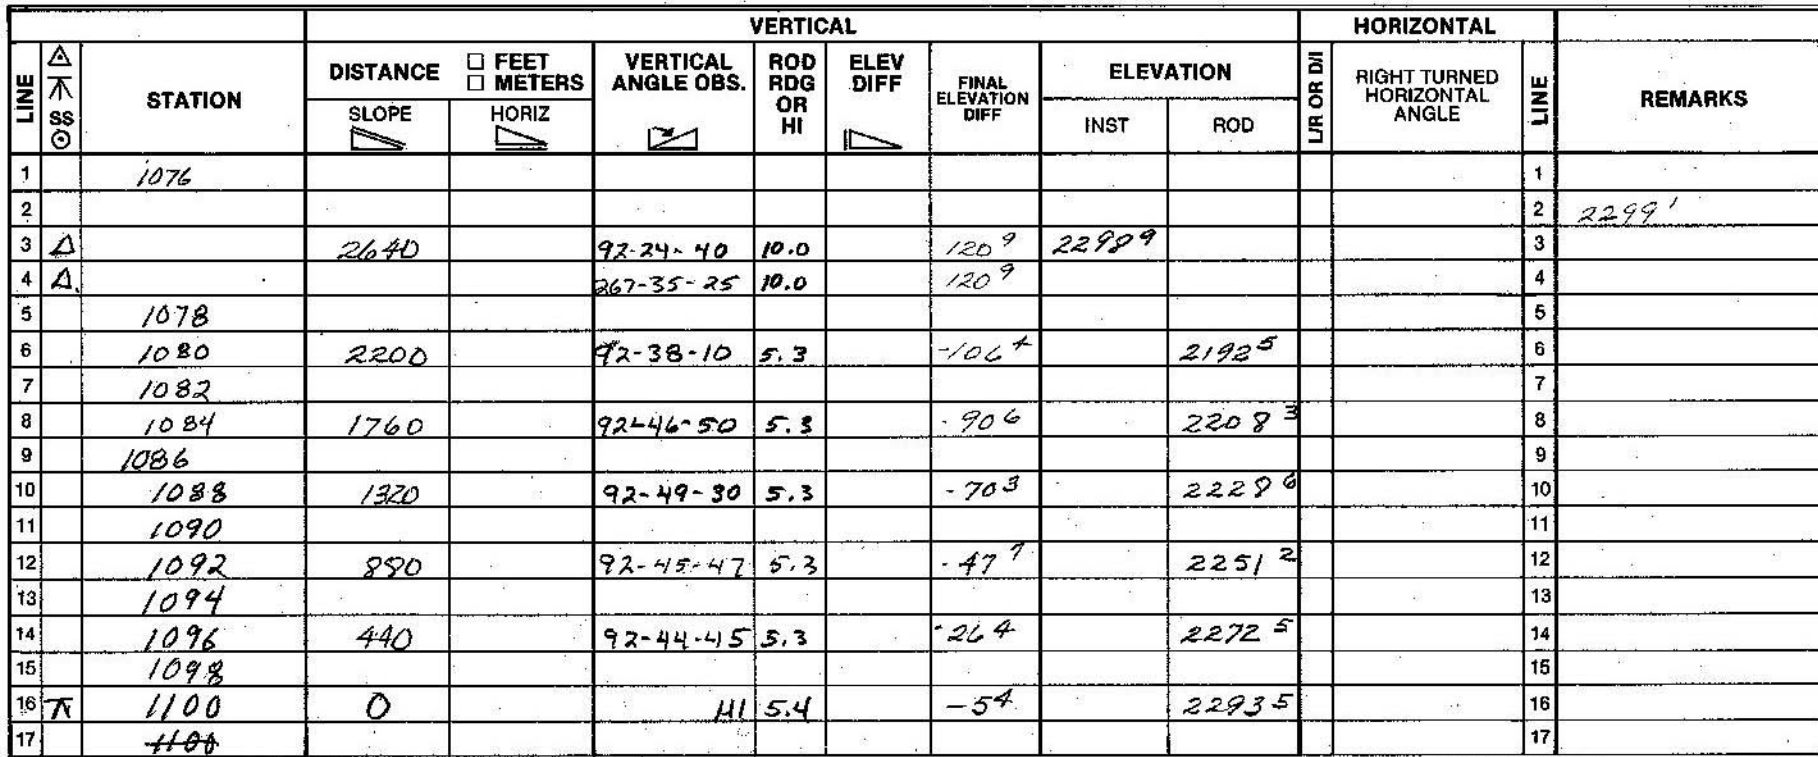 VERTICAL HORIZONTAL
LINE SS STATION DISTANCE □ FEET □ METERS SLOPE HORIZ VERTICAL ANGLE OBS. ROD RDG OR HI ELEV DIFF FINAL ELEVATION DIFF ELEVATION INST ROD L/R OR D/I RIGHT TURNED HORIZONTAL ANGLE LINE REMARKS
1 1076 1
2 2 2299 1
3 Δ 2640 92-24-40 10.0 120 9 2298 9 3
4 Δ. 267-35-25 10.0 120 9 4
5 1078 5
6 1080 2200 92-38-10 5.3 -106 4 2192 5 6
7 1082 7
8 1084 1760 92-46-50 5.3 -90 6 2208 3 8
9 1086 9
10 1088 1320 92-49-30 5.3 -70 3 2228 6 10
11 1090 11
12 1092 880 92-45-47 5.3 -47 7 2251 2 12
13 1094 13
14 1096 440 92-44-45 5.3 -26 4 2272 5 14
15 1098 15
16 1100 0 HI 5.4 -5 4 2293 5 16
17 1100 17